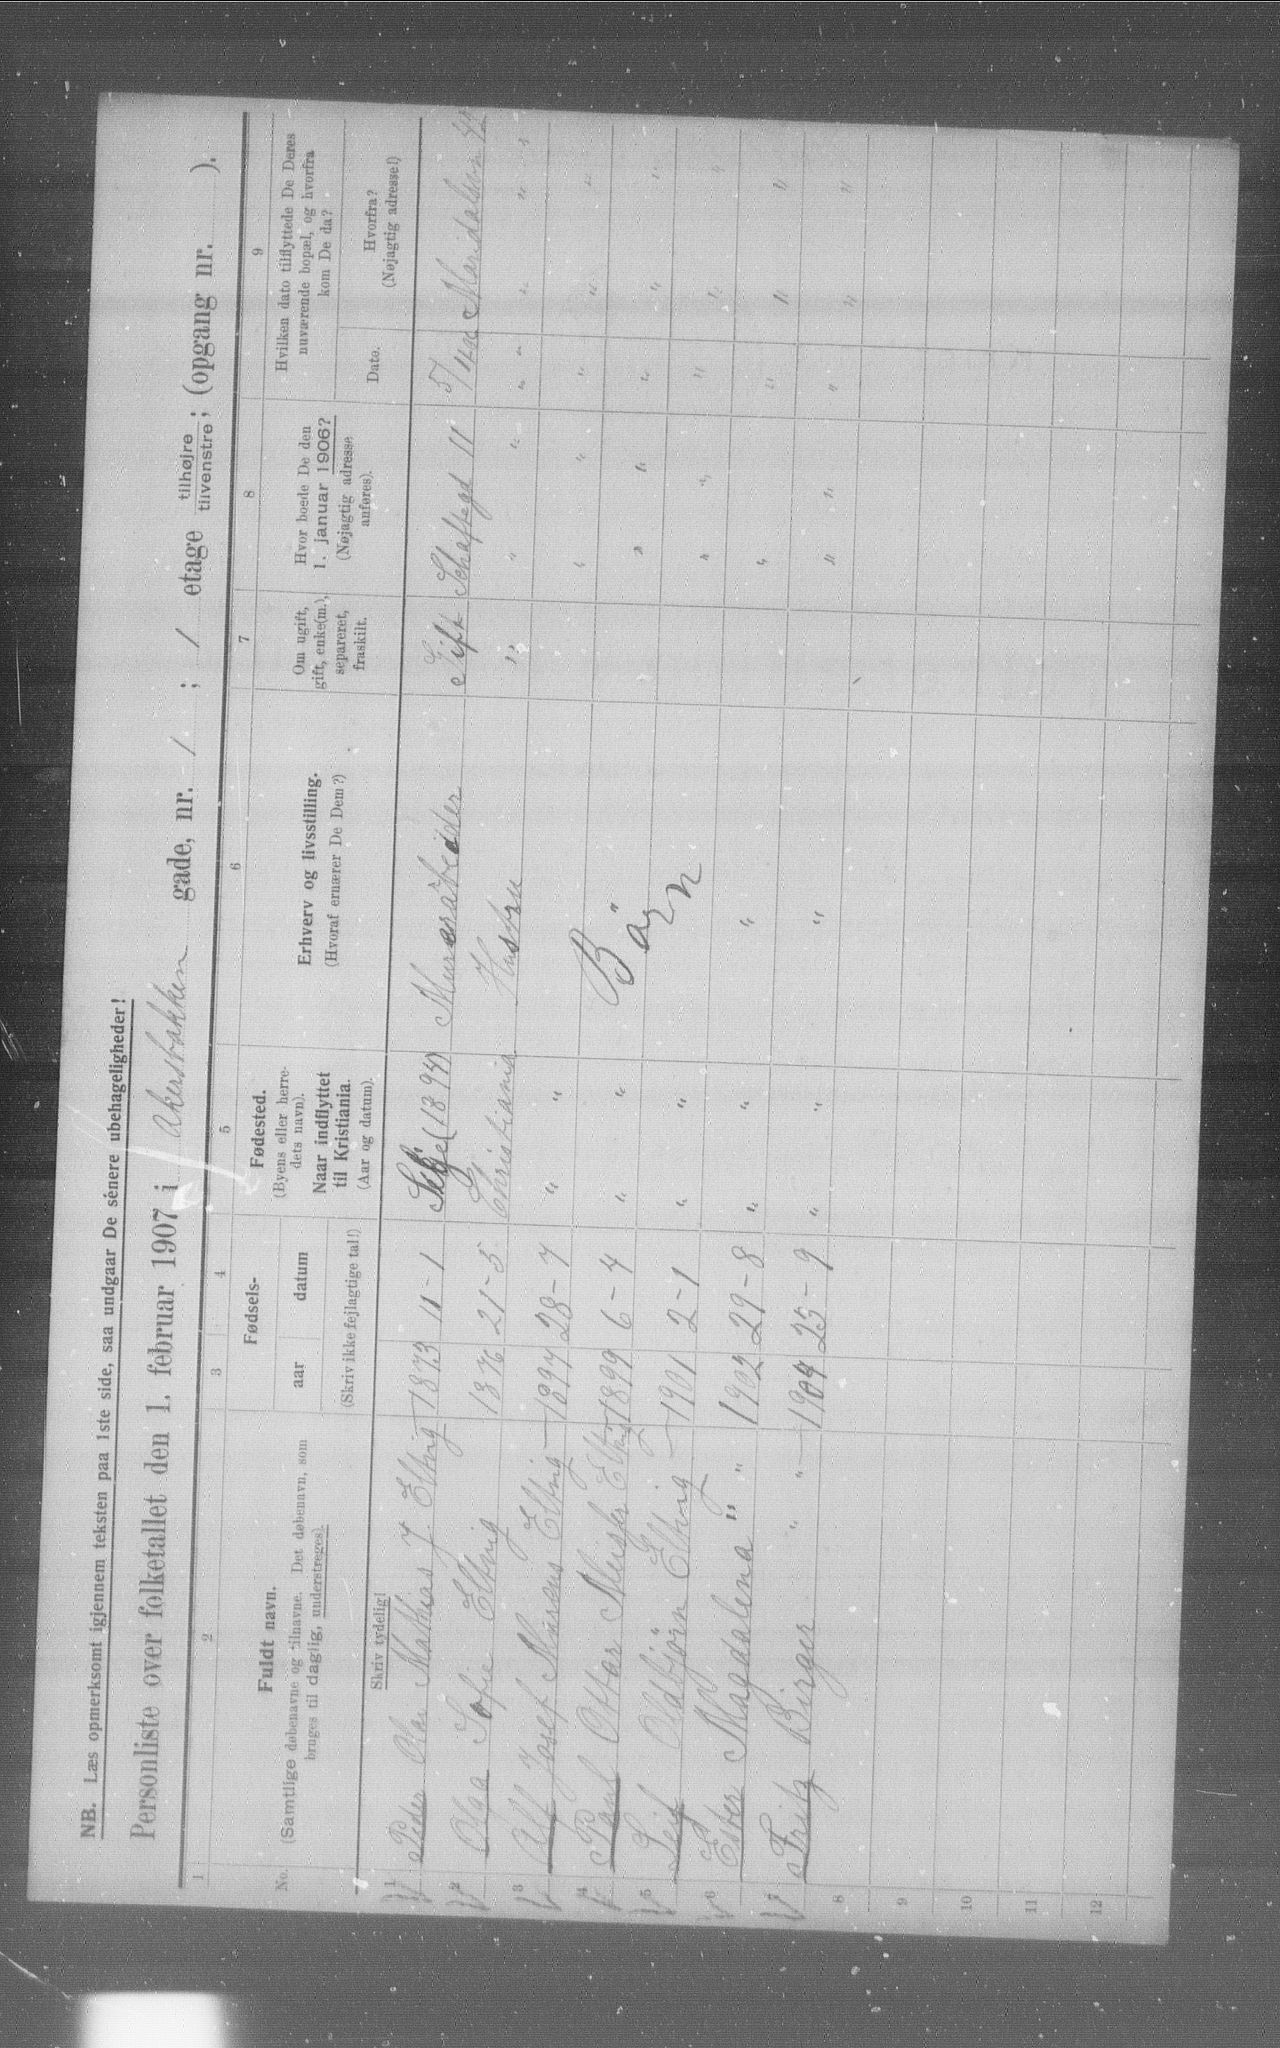 NB. Læs opmerksomt igjennem teksten paa 1ste side, saa undgaar De senere ubehageligheder!
Personliste over folketallet den 1. februar 1907 i Akersbakken gade, nr. 1 ; 1 etage tilhøjre tilvenstre ; (opgang nr. ).
1 2 3 4 5 6 7 8 9
No. Fuldt navn.
(Samtlige døbenavne og tilnavne. Det døbenavn, som bruges til daglig, understreges).
Skriv tydelig!
Fødsels-
aar datum
(Skriv ikke fejlagtige tal!)
Fødested.
(Byens eller herredets navn).
Naar indflyttet til Kristiania.
(Aar og datum).
Erhverv og livsstilling.
(Hvoraf ernærer De Dem?)
Om ugift, gift, enke(m.), separeret, fraskilt.
Hvor boede De den 1. januar 1906?
(Nøjagtig adresse anføres).
Hvilken dato tilflyttede De Deres nuværende bopæl, og hvorfra kom De da?
Dato.
Hvorfra?
(Nøjagtig adresse!)
1 Peder Olai Mathias J. Elbrig 1873 11-1 (1894) Murarbeider Gift 11 5/ Maridalsvn 42
2 Olga Sofie Elbrig 1876 21-5 Christiania Hustru " " " " " " "
3 Alf Josef Elbrig 1897 28-7 " " " " " " "
4 Paul Ottar Elbrig 1899 6-4 " " Barn " " " " "
5 Leif Oddbjørn Elbrig 1901 2-1 " " " " " " "
6 Ester Magdalena " " 1902 29-8 " " " " " " "
7 Fritz Birger " " 1904 25-9 " " " " " " " "
8
9
10
11
12